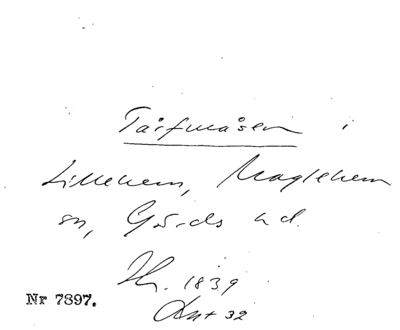 Tårfmåsen i
Lillehem, Maglehem
sn, Gärds hd.
Th. 1839
Ant 32
Nr 7897.